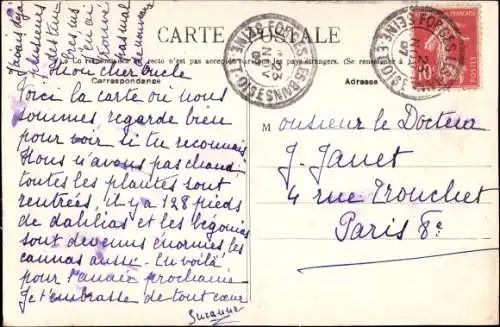 CARTE POSTALE
La Correspondance au recto n'est pas acceptée par tous les pays étrangers. (Se renseigner à la Poste)
Correspondance
Adresse
FORGES-LES-BAINS
SEINE-ET-OISE
23
NOV
FORGES
SEINE-ET-OISE
23
NOV
FRANÇAISE
POSTES
10
J'avais déjà
plusieurs
mais
Mon cher Oncle
Voici la carte où nous
sommes regarde bien
pour voir si tu reconnais
Nous n'avons pas chaud
toutes les plantes sont
rentrées, il y a 128 pieds
de dahlias et les bégonias
sont devenus énormes, les
cannas aussi. En voilà
pour l'année prochaine
Je t'embrasse de tout cœur
Suzanne
Monsieur le Docteur
J. Janet
4 rue Tronchet
Paris 8e